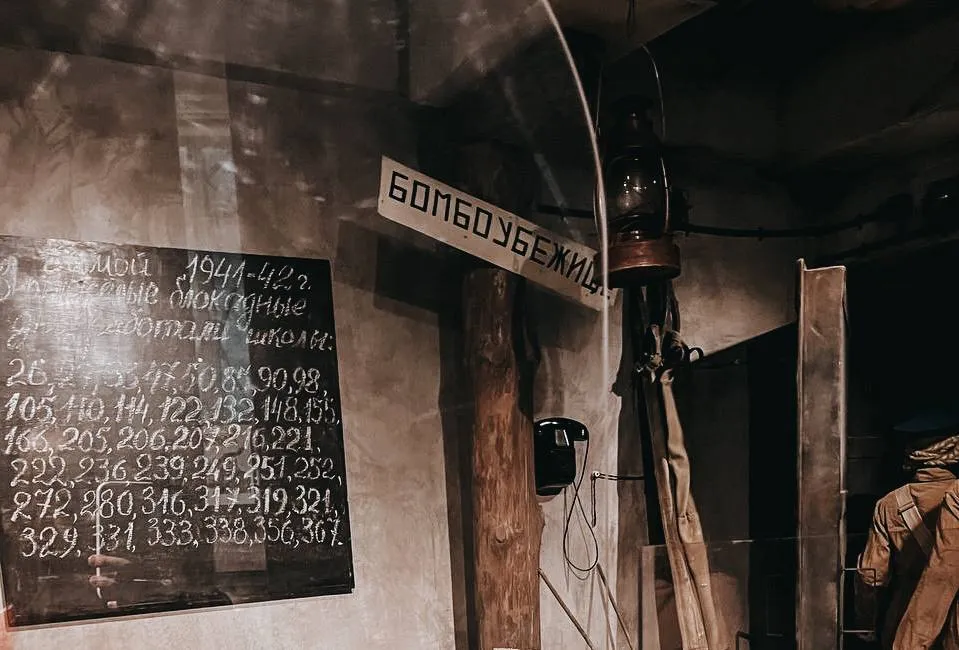 зимой 1941-42 г.
блокадные
работали школы:
26, 47, 50, 90, 98,
105, 110, 114, 122, 132, 148, 155,
166, 205, 206, 207, 216, 221,
222, 236, 239, 249, 251, 252,
272, 280, 316, 317, 319, 321,
329, 331, 333, 338, 356, 367.
БОМБОУБЕЖИЩ